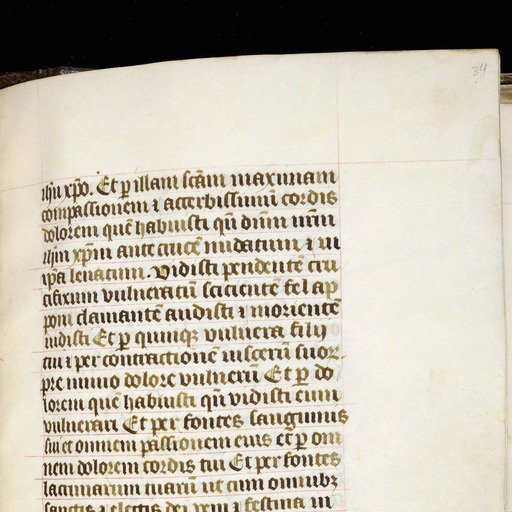 34
ihu xpo. Et p illam scam maximam
compassionem ⁊ acerbissimu cordis
dolorem que habuisti qn dnm nrm
ihm xpm ante cruce nudatum ⁊ in
ipa leuatum. Vidisti pendente cru
cifixum vulneratu scicientē fel ap
poni clamantē audisti ⁊ morientē
uidisti Et p quinqꝫ vulnera filij
tui ⁊ per contractionē uiscerū tuor
pre nimio dolore vulnerū Et p do
lorem quē habuisti qn vidisti eum
vulnerari Et per fontes sanguinis
sui et omnem passionem eius et p om
nem dolorem cordis tui Et per fontes
lacrimarum tuarū ut cum omnibꝫ
sanctis ⁊ electis dei veni ⁊ festina in